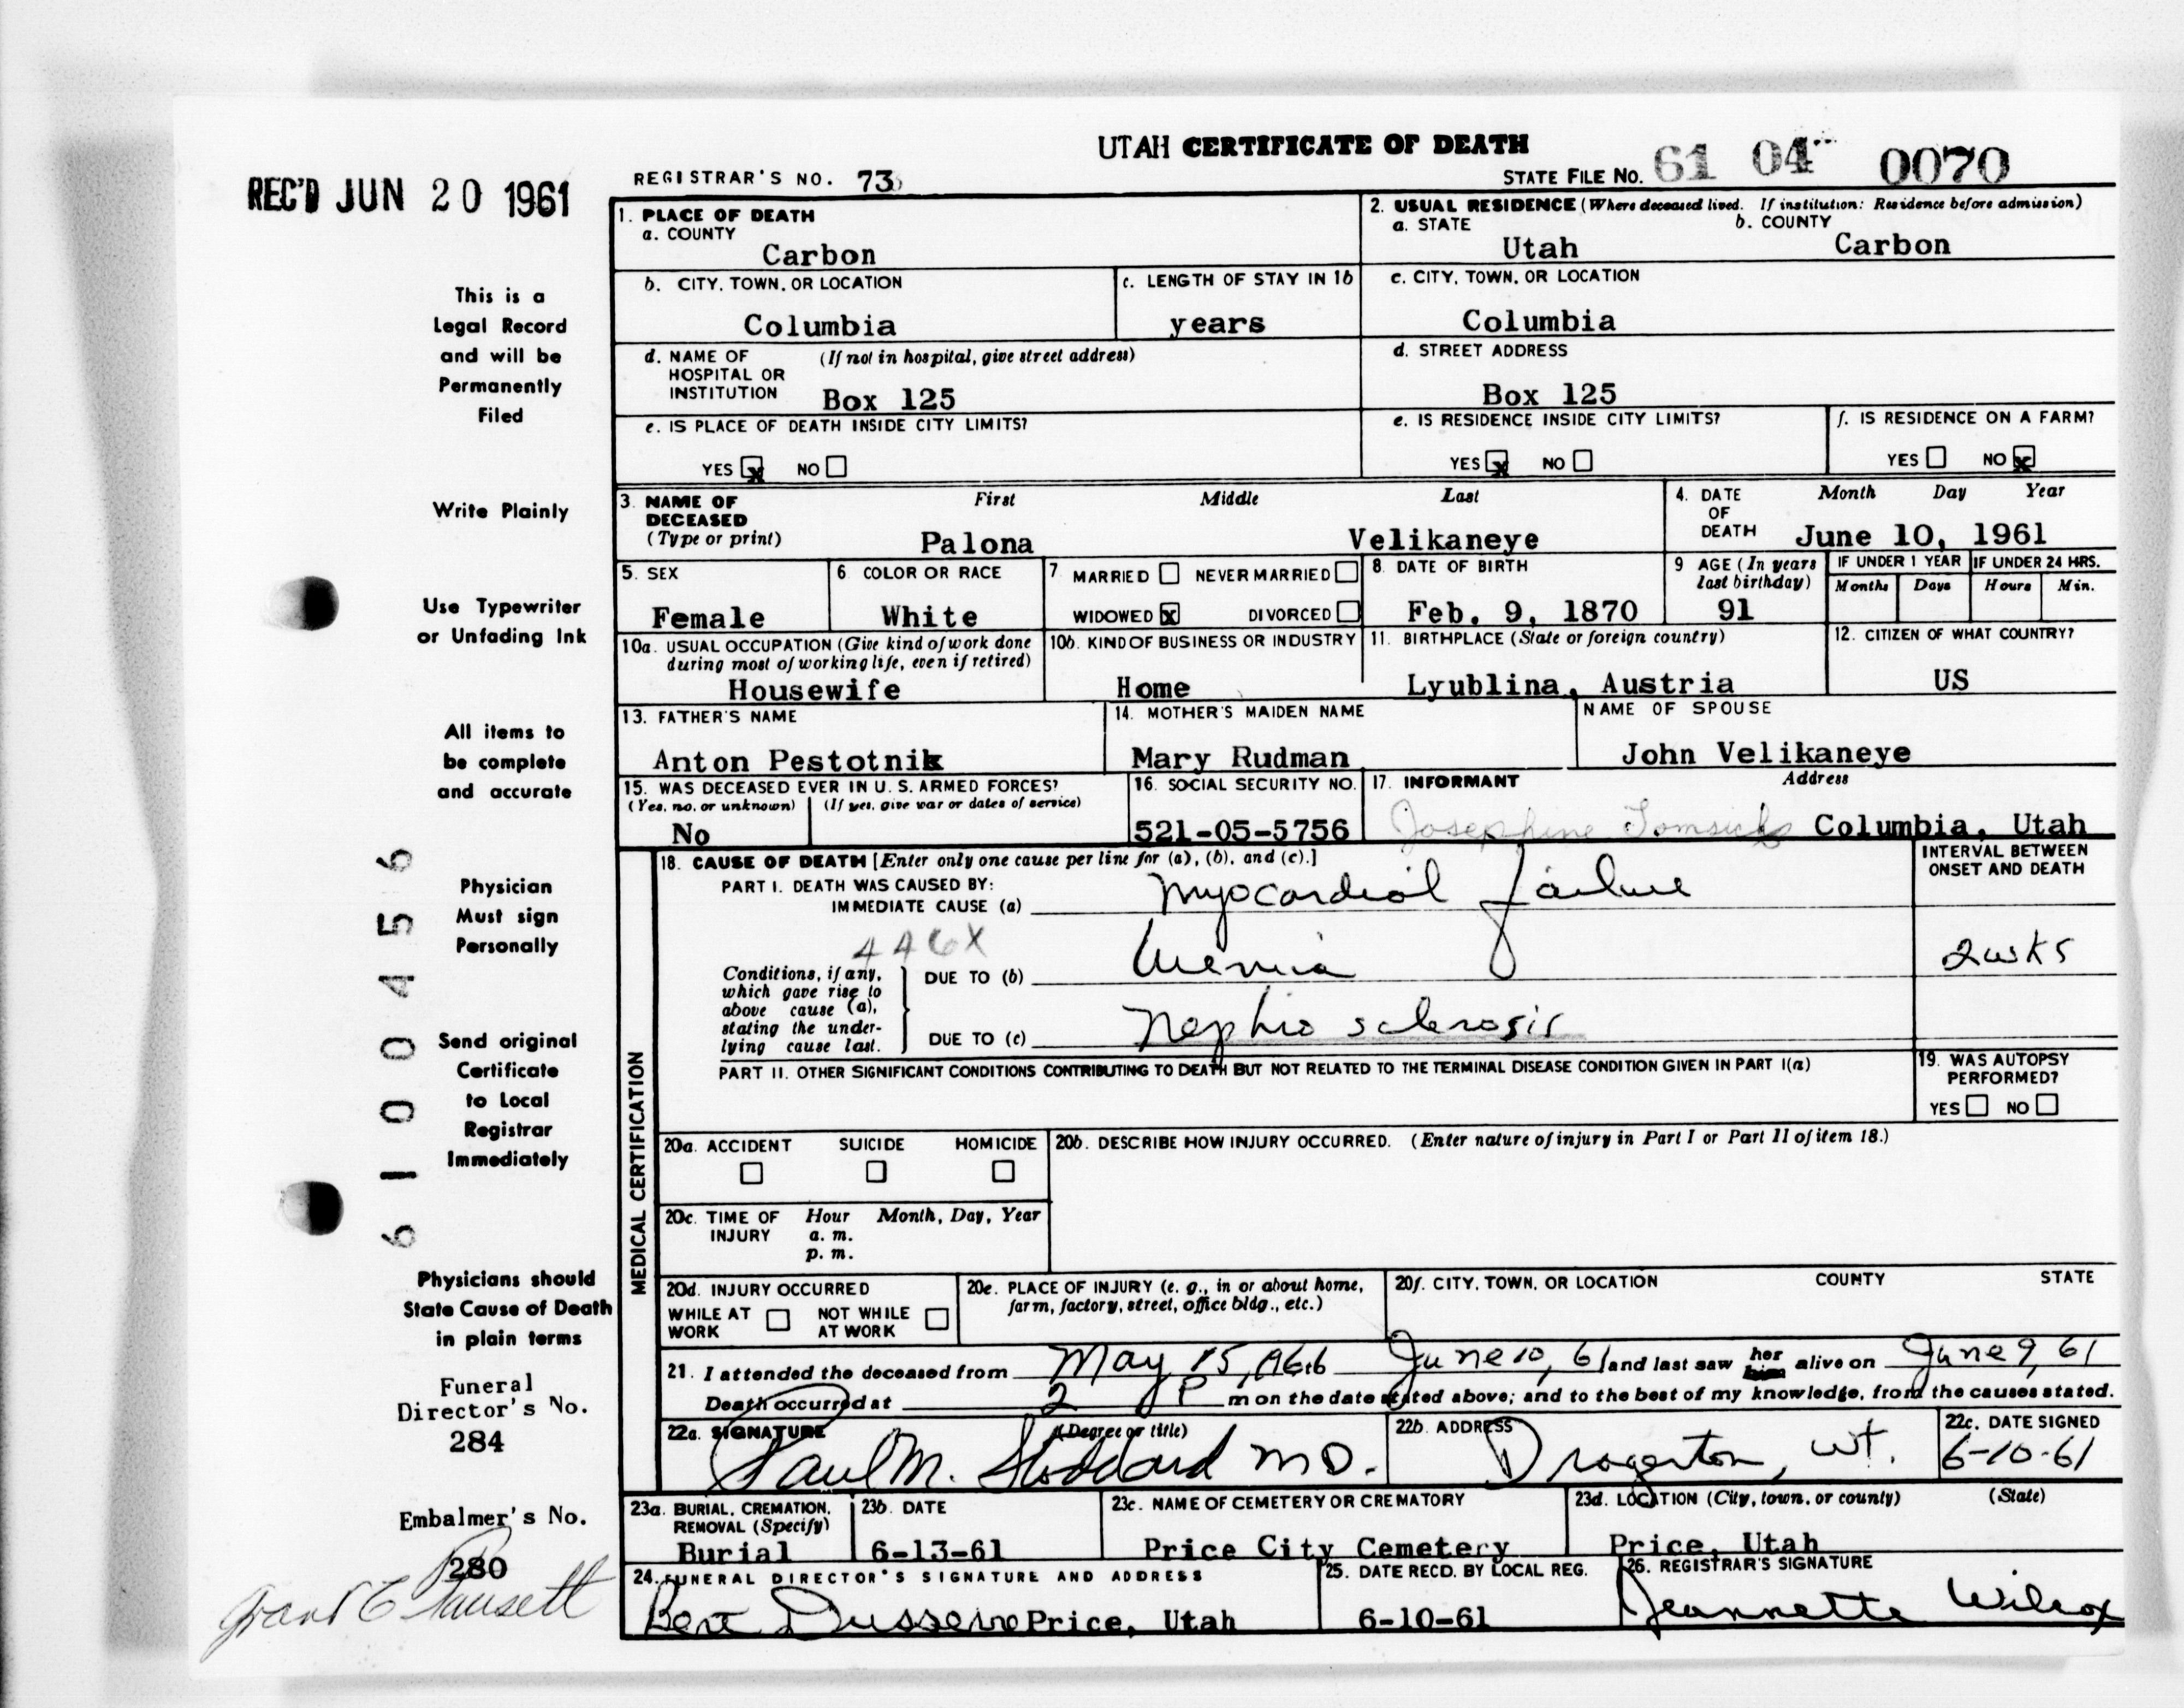 UTAH CERTIFICATE OF DEATH
REC'D JUN 20 1961
REGISTRAR'S NO. 73
STATE FILE No. 61 04 0070
1. PLACE OF DEATH
a. COUNTY
Carbon
2. USUAL RESIDENCE (Where deceased lived. If institution: Residence before admission)
a. STATE b. COUNTY
Utah Carbon
b. CITY, TOWN, OR LOCATION
Columbia
c. LENGTH OF STAY IN 1b
years
c. CITY, TOWN, OR LOCATION
Columbia
d. NAME OF (If not in hospital, give street address)
HOSPITAL OR
INSTITUTION Box 125
d. STREET ADDRESS
Box 125
e. IS PLACE OF DEATH INSIDE CITY LIMITS?
YES x NO
e. IS RESIDENCE INSIDE CITY LIMITS?
YES x NO
f. IS RESIDENCE ON A FARM?
YES NO x
3. NAME OF First Middle Last
DECEASED
(Type or print) Palona Velikaneye
4. DATE Month Day Year
OF
DEATH June 10, 1961
5. SEX
Female
6 COLOR OR RACE
White
7 MARRIED NEVER MARRIED
WIDOWED x DIVORCED
8 DATE OF BIRTH
Feb. 9, 1870
9 AGE (In years
last birthday)
91
IF UNDER 1 YEAR
Months Days
IF UNDER 24 HRS.
Hours Min.
10a. USUAL OCCUPATION (Give kind of work done
during most of working life, even if retired)
Housewife
10b. KIND OF BUSINESS OR INDUSTRY
Home
11. BIRTHPLACE (State or foreign country)
Lyublina, Austria
12. CITIZEN OF WHAT COUNTRY?
US
13. FATHER'S NAME
Anton Pestotnik
14. MOTHER'S MAIDEN NAME
Mary Rudman
NAME OF SPOUSE
John Velikaneye
15. WAS DECEASED EVER IN U. S. ARMED FORCES?
(Yes, no, or unknown) (If yes, give war or dates of service)
No
16. SOCIAL SECURITY NO.
521-05-5756
17. INFORMANT Address
Josephine Tomsick Columbia, Utah
MEDICAL CERTIFICATION
18. CAUSE OF DEATH [Enter only one cause per line for (a), (b), and (c).]
INTERVAL BETWEEN
ONSET AND DEATH
PART I. DEATH WAS CAUSED BY:
IMMEDIATE CAUSE (a) Myocardial failure
446X
Conditions, if any,
which gave rise to
above cause (a),
stating the under-
lying cause last.
DUE TO (b) Uremia 2 wks
DUE TO (c) Nephro sclerosis
PART II. OTHER SIGNIFICANT CONDITIONS CONTRIBUTING TO DEATH BUT NOT RELATED TO THE TERMINAL DISEASE CONDITION GIVEN IN PART I(a)
19. WAS AUTOPSY
PERFORMED?
YES NO
20a. ACCIDENT SUICIDE HOMICIDE
20b. DESCRIBE HOW INJURY OCCURRED. (Enter nature of injury in Part I or Part II of item 18.)
20c. TIME OF Hour Month, Day, Year
INJURY a. m.
p. m.
20d. INJURY OCCURRED
WHILE AT NOT WHILE
WORK AT WORK
20e. PLACE OF INJURY (e. g., in or about home,
farm, factory, street, office bldg., etc.)
20f. CITY, TOWN, OR LOCATION COUNTY STATE
21. I attended the deceased from May 15, June 10, 61 and last saw her him alive on June 9, 61
Death occurred at 2 P m on the date stated above; and to the best of my knowledge, from the causes stated.
22a. SIGNATURE (Degree or title)
Paul M. Stoddard MD.
22b. ADDRESS
Dragerton, Ut.
22c. DATE SIGNED
6-10-61
23a. BURIAL, CREMATION,
REMOVAL (Specify)
Burial
23b. DATE
6-13-61
23c. NAME OF CEMETERY OR CREMATORY
Price City Cemetery
23d. LOCATION (City, town, or county) (State)
Price, Utah
24. FUNERAL DIRECTOR'S SIGNATURE AND ADDRESS
Price, Utah
25. DATE RECD. BY LOCAL REG.
6-10-61
26. REGISTRAR'S SIGNATURE
Jeannette Wilcox
This is a
Legal Record
and will be
Permanently
Filed
Write Plainly
Use Typewriter
or Unfading Ink
All items to
be complete
and accurate
Physician
Must sign
Personally
Send original
Certificate
to Local
Registrar
Immediately
Physicians should
State Cause of Death
in plain terms
Funeral
Director's No.
284
Embalmer's No.
280
61 00456